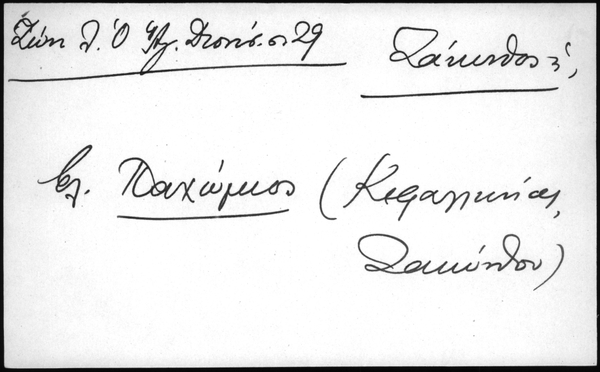 Ζώη Λ. Ὁ Ἅγ. Διονύσ. σ. 29
Ζάκυνθος
βλ. Παχώμιος (Κεφαλληνίας,
Ζακύνθου)